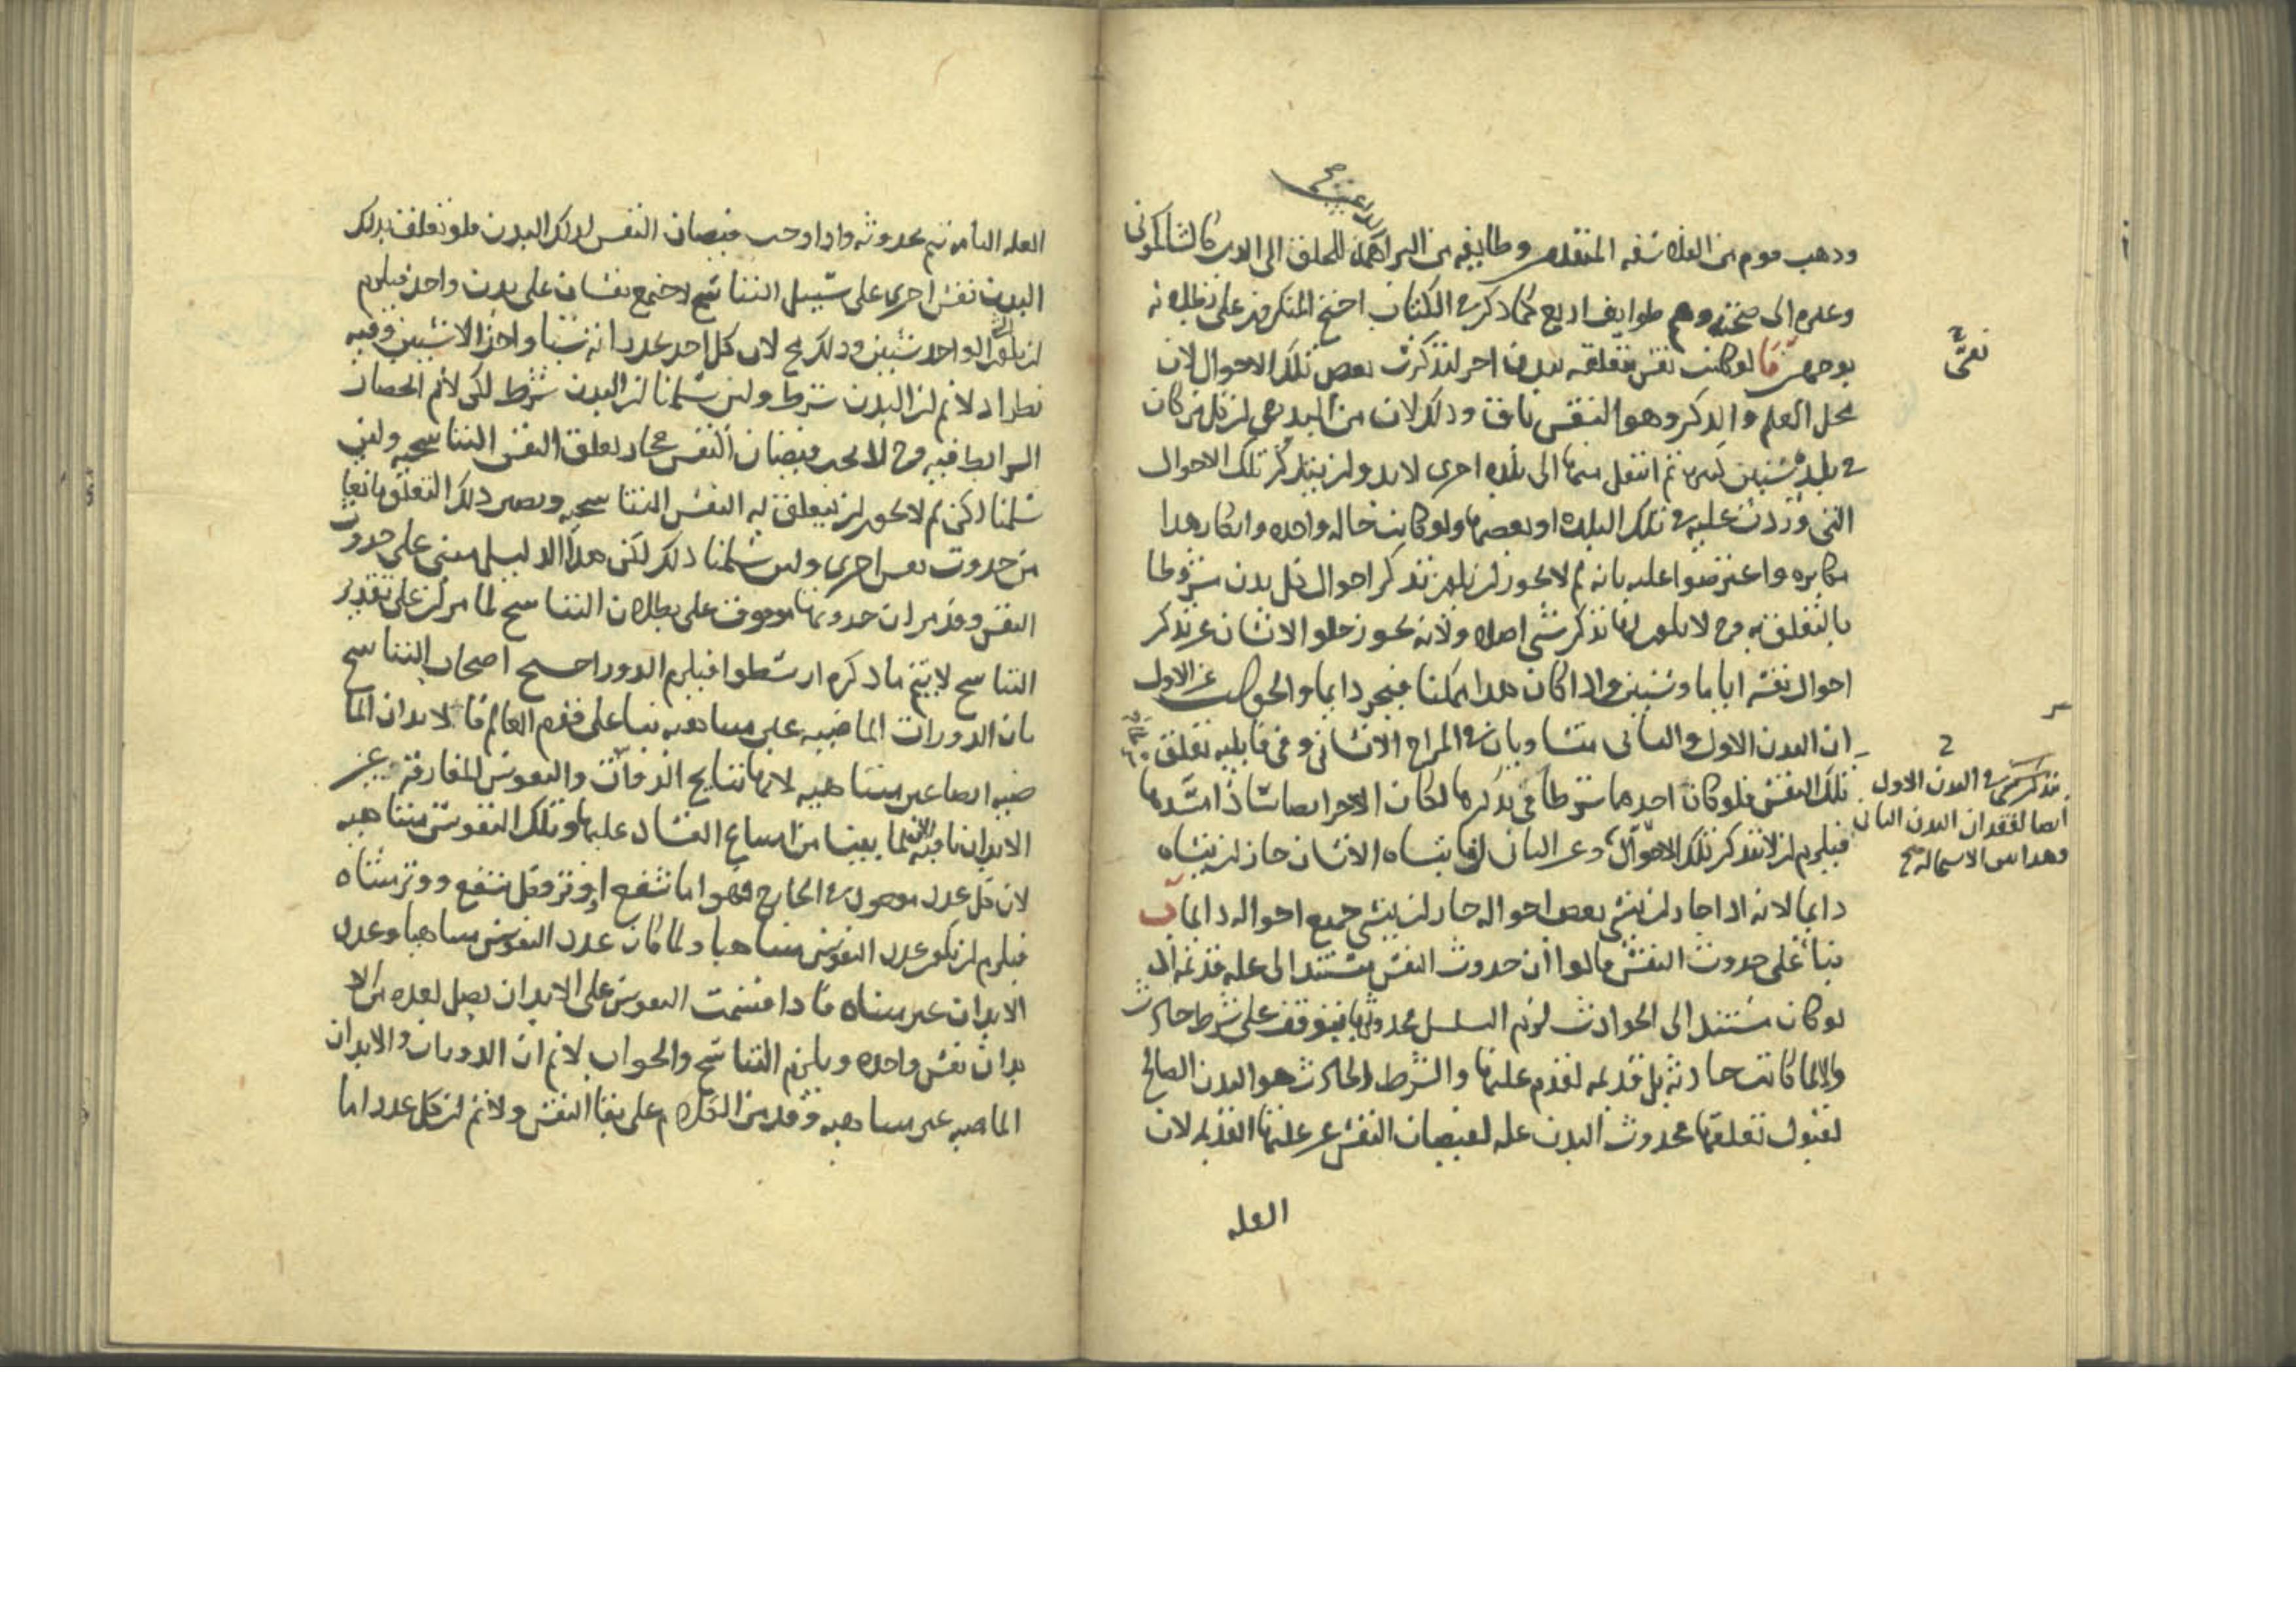 وذهب قوم من الفلاسفه المتقدمين وطايفه من البراهمة
وعدم الى صحته وهم طوايف اربع كما ذكر في الكتاب احتج المنكرون على بطلانه
بوجهين آ لو كانت نفس متعلقه ببدن اخر لتذكرت بعض تلك الاحوال لان
محل العلم والذكر وهو النفس باق وذلك لان من البديهي ان من كان
في بلد سنين كثيره ثم انتقل منها الى بلده اخرى لابد وان يتذكر تلك الاحوال
التي وردت عليه في تلك البلده او بعضها ولو كانت حاله واحده وانكار هذا
مكابره واعترضوا عليه بانه لم لا يجوز ان يكون تذكر احوال كل بدن مشروطا
بالتعلق به وح لا يكون لها تذكر شي اصلا ولانه يجوز خلو الانسان عن تذكر
احوال نفسه اياما وسنين واذا كان هذا ممكنا فيجوز دايما والجواب عن الاول
ان البدن الاول والثاني متساويان في المزاج الانساني وفي قابليه تعلق
تلك النفس فلو كان احدهما شرطا في تذكرها لكان الاخر ايضا
فيلزم ان لا تتذكر تلك الاحوال وعن الثاني انه الانسان جاز ان ينساه
دايما لانه اذا جاز ان ينسى بعض احواله جاز ان ينسى جميع احواله دايما ب
بناء على حدوث النفس قالوا ان حدوث النفس مستند الى عله قديمه اذ
لو كان مستندا الى الحوادث لزم التسلسل فحدوثها يتوقف على شرط حادث
والا لما كانت حادثه بل قديمه لقدم علتها والشرط الحادث هو البدن الصالح
لقبول تعلقها فحدوث البدن عله لفيضان النفس عن علتها القديمه لان
العله
تذكر في البدن الاول
ايضا لفقدان البدن الثاني
وهذا من الاستحاله صح
العله التامه تتم بحدوثه واذا وجب فيضان النفس لذلك البدن فلو تعلقت بذلك
البدن نفس اخرى على سبيل التناسخ لاجتمع نفسان على بدن واحد فيلزم
ان يكون الواحد شيئين وذلك مح لان كل احد يجد ذاته شيئا واحدا لا شيئين وفيه
نظر اذ لا نم ان البدن شرط ولئن سلمنا ان البدن شرط لكن لا نم انحصار
الشرايط فيه وح لا يجب فيضان النفس فجاز تعلق النفس التناسخيه ولئن
سلمنا لكن لم لا يجوز ان يتعلق به النفس التناسخيه ويصير ذلك التعلق مانعا
من حدوث نفس اخرى ولئن سلمنا ذلك لكن هذا الدليل مبني على حدوث
النفس وقد مر ان حدوثها موقوف على بطلان التناسخ لما مر ان على تقدير
التناسخ لا يتم ما ذكره ارسطو فيلزم الدور احتج اصحاب التناسخ
بان الدورات الماضيه غير متناهيه بناء على قدم العالم فالابدان الما
ضيه ايضا غير متناهيه لانها نتايج الدورات والنفوس المفارقه عن
الابدان باقيه لما بينا من امتناع الفساد عليها وتلك النفوس متناهيه
لان كل عدد موجود في الخارج فهو اما شفع او وتر وكل شفع ووتر متناه
فيلزم ان يكون عدد النفوس متناهيا ولما كان عدد النفوس متناهيا وعدد
الابدان غير متناه فاذا قسمت النفوس على الابدان يصل لعده من الا
بدان نفس واحده ويلزم التناسخ والجواب لا نم ان الدورات والابدان
الماضيه غير متناهيه وقد مر الكلام على بقا النفس ولا نم ان كل عدد اما